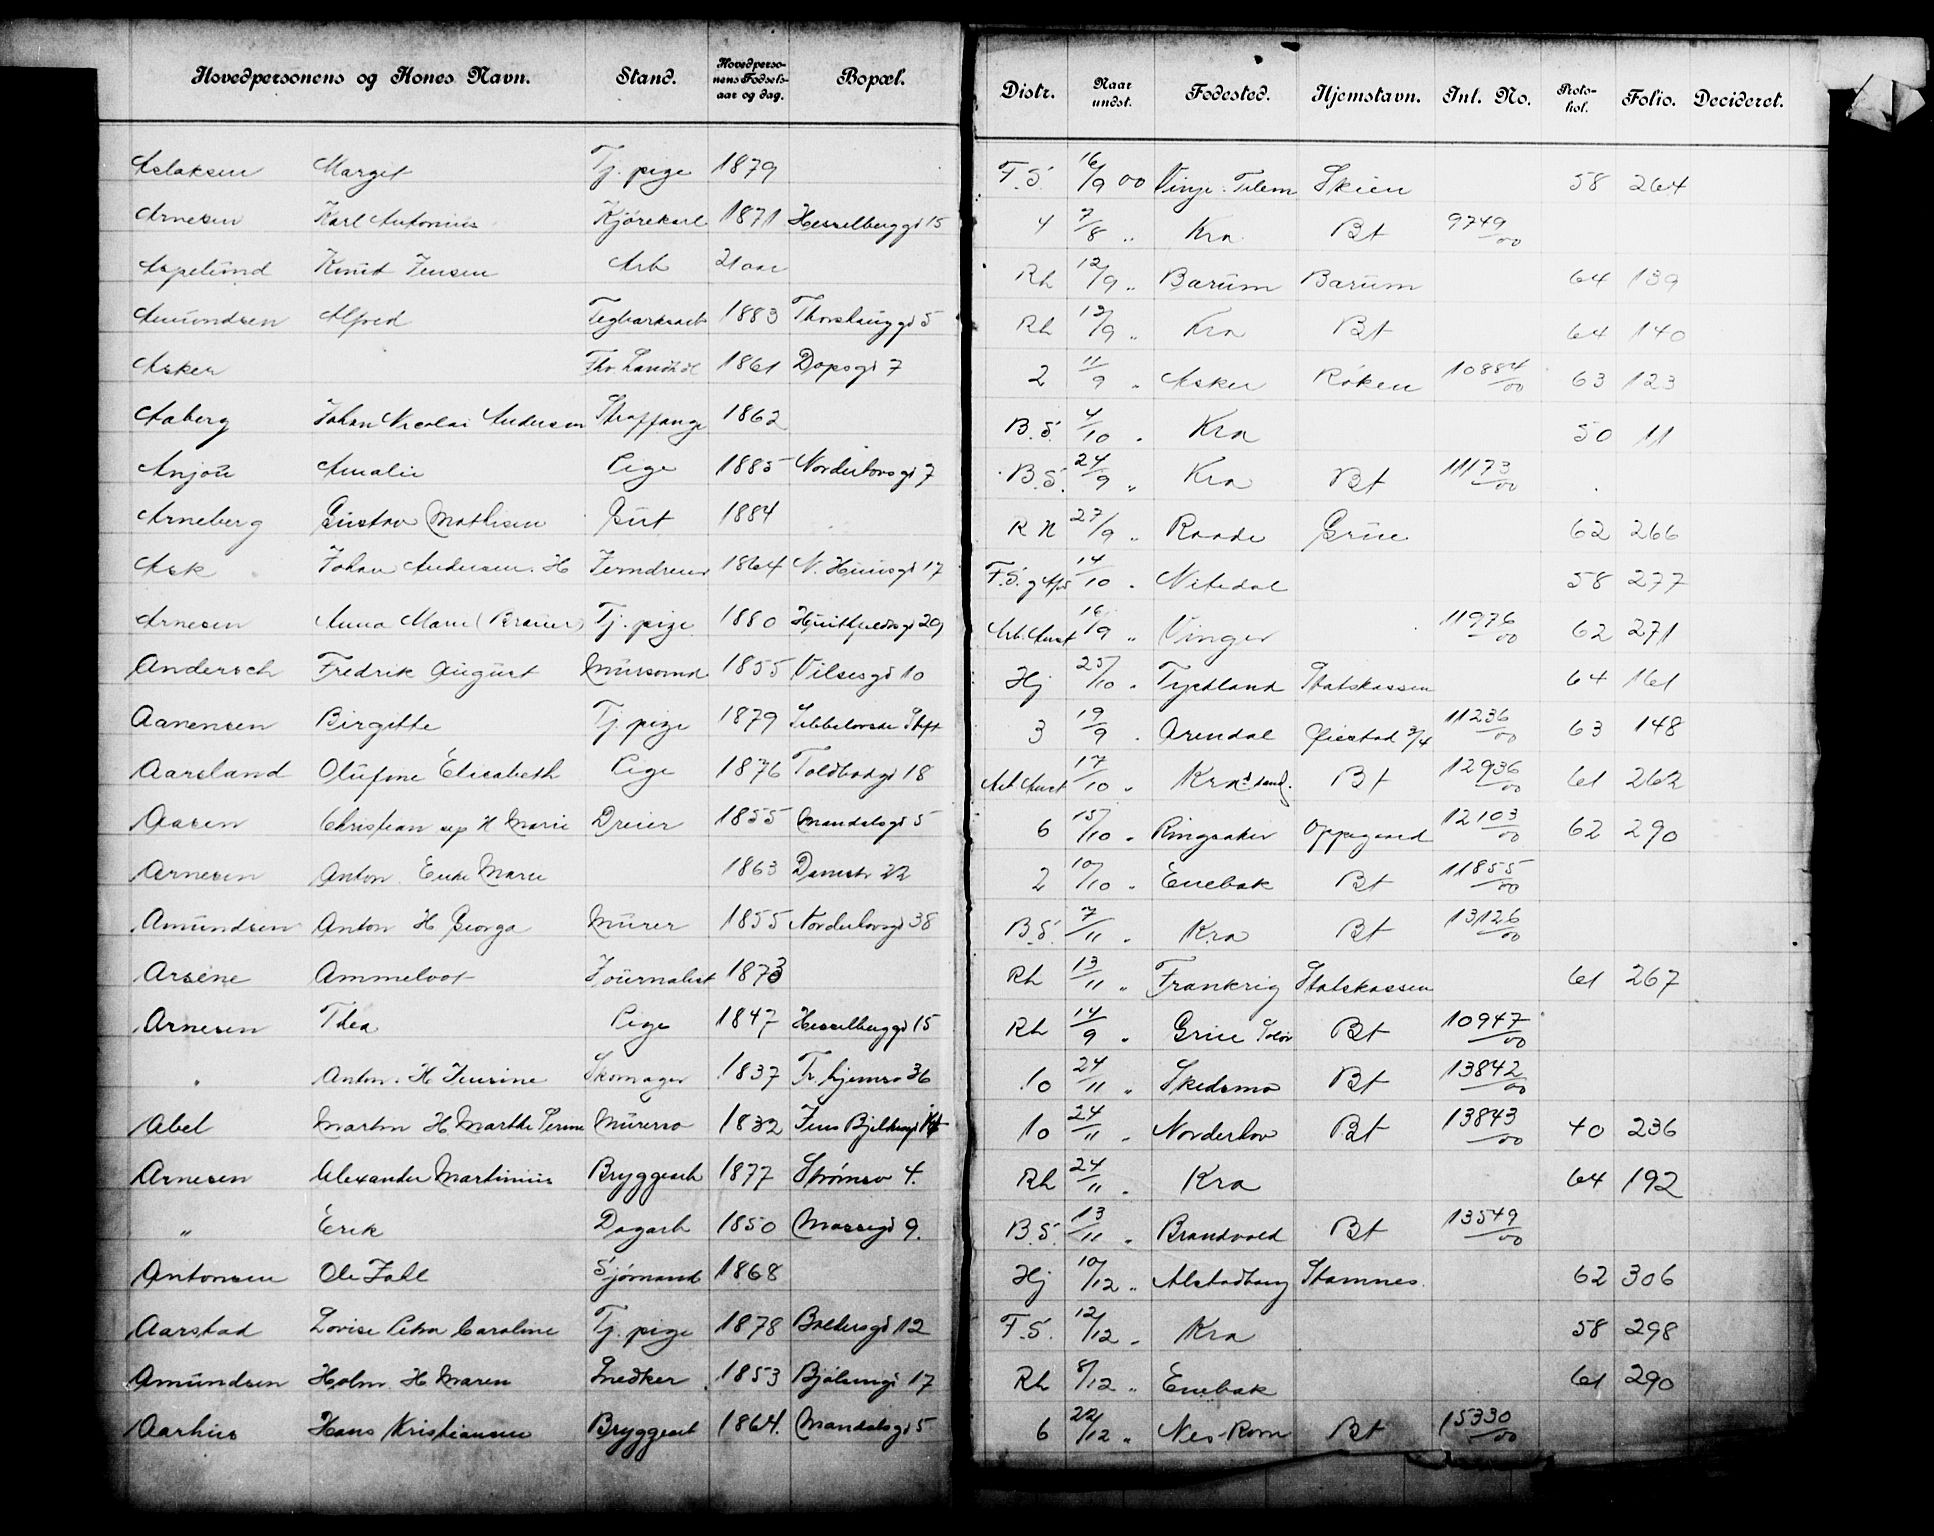 Hovedpersonens og Kones Navn. Stand. Hovedpersonens Fødselsaar og dag. Bopæl. Distr. Naar undst. Fødested. Hjemstavn. Int. No. Protokol. Folio. Decideret.
Aslaksen Margit Tj. pige 1879 F.S. 16/9 00 Vinje Telem Skien 58 264
Arnesen Karl Antonius Kjørekarl 1871 Hesselberggd 15 4 7/8 " Kra Bt 9749/00
Aspelund Knut Jensen Arb 21 aar Rh 12/9 " Barum Barum 64 139
Amundsen Alfred 1883 5 Rh 12/9 " Kra Bt 64 140
Asker 1861 Dopsgd 7 2 11/9 " Asker Røken 10884/00 63 123
Aaberg Johan Nicolai Andersen Straffange 1862 B.S. 4/10 " Kra 50 11
Anjou Amalie Pige 1885 Norderhovsgd 7 B.S. 24/9 " Kra Bt 11173/00
Arneberg Gustav Mathisen Gut 1884 R N 27/9 " Raade Grue 62 266
Ask Johan Andersen. H Jerndreier 1864 N. Huusgd 17 F.S. 14/10 " Nitedal 58 277
Arnesen Anna Marie (Brauer) Tj. pige 1880 Huitfeldtsgd 29 Arb. Anst 16/9 " Vinger 11976/00 62 271
Andersch Fredrik August Mursvend 1855 Vilsesgd 10 Hj 25/10 " Tyskland Statskassen 64 161
Aanensen Birgitte Tj. pige 1879 Sebbelovske Stift 3 19/9 " Arendal Øiestad 3/4 11236/00 63 148
Aarsland Olufine Elisabeth Pige 1876 Toldbodgd 18 Arb Anst 17/10 " Kra.sand. Bt 12936/00 61 262
Aasen Christian sep H Marie Dreier 1855 Mandalsgd 5 6 15/10 " Ringsaker Oppegaard 12103/00 62 290
Arnesen Anton. Enke Marie 1863 Damstr 22 2 10/10 " Enebak Bt 11855/00
Amundsen Anton H Georga Murer 1855 Norderhovsgd 38 B.S. 7/11 " Kra Bt 13126/00
Arsene Ammelvot Journalist 1873 Rh 13/11 " Frankrig Statskassen 61 267
Arnesen Thea Pige 1847 Hesselberggd 15 Rh 14/9 " Grue Solør Bt 10947/00
" Anton. H Jensine Skomager 1837 Tr. hjemsv 36 10 24/11 " Skedsmo Bt 13842/00
Abel Martin H Marthe Perine Murersv 1832 Jens Bjelkesgd 14 10 24/11 " Norderhov Bt 13843/00 40 236
Arnesen Alexander Martinius Bryggearb 1877 Strømsv 4. Rh 24/11 " Kra 64 192
" Erik Dagarb 1850 Mossegd 9. B.S. 13/11 " Brandvold Bt 13549/00
Antonsen Ole Fahl Sjømand 1868 Hj 10/12 " Alstadhaug Stamnes. 62 306
Aarstad Lovise Petra Caroline Tj. pige 1878 Baldersgd 12 F.S. 12/12 " Kra 58 298
Amundsen Holm. H. Maren Snedker 1853 Bjølsengd 17 Rh 8/12 " Enebak 61 290
Aarhus Hans Kristiansen Bryggearb 1864. Mandalsgd 5 6 22/12 " Nes-Rom Bt 15330/00